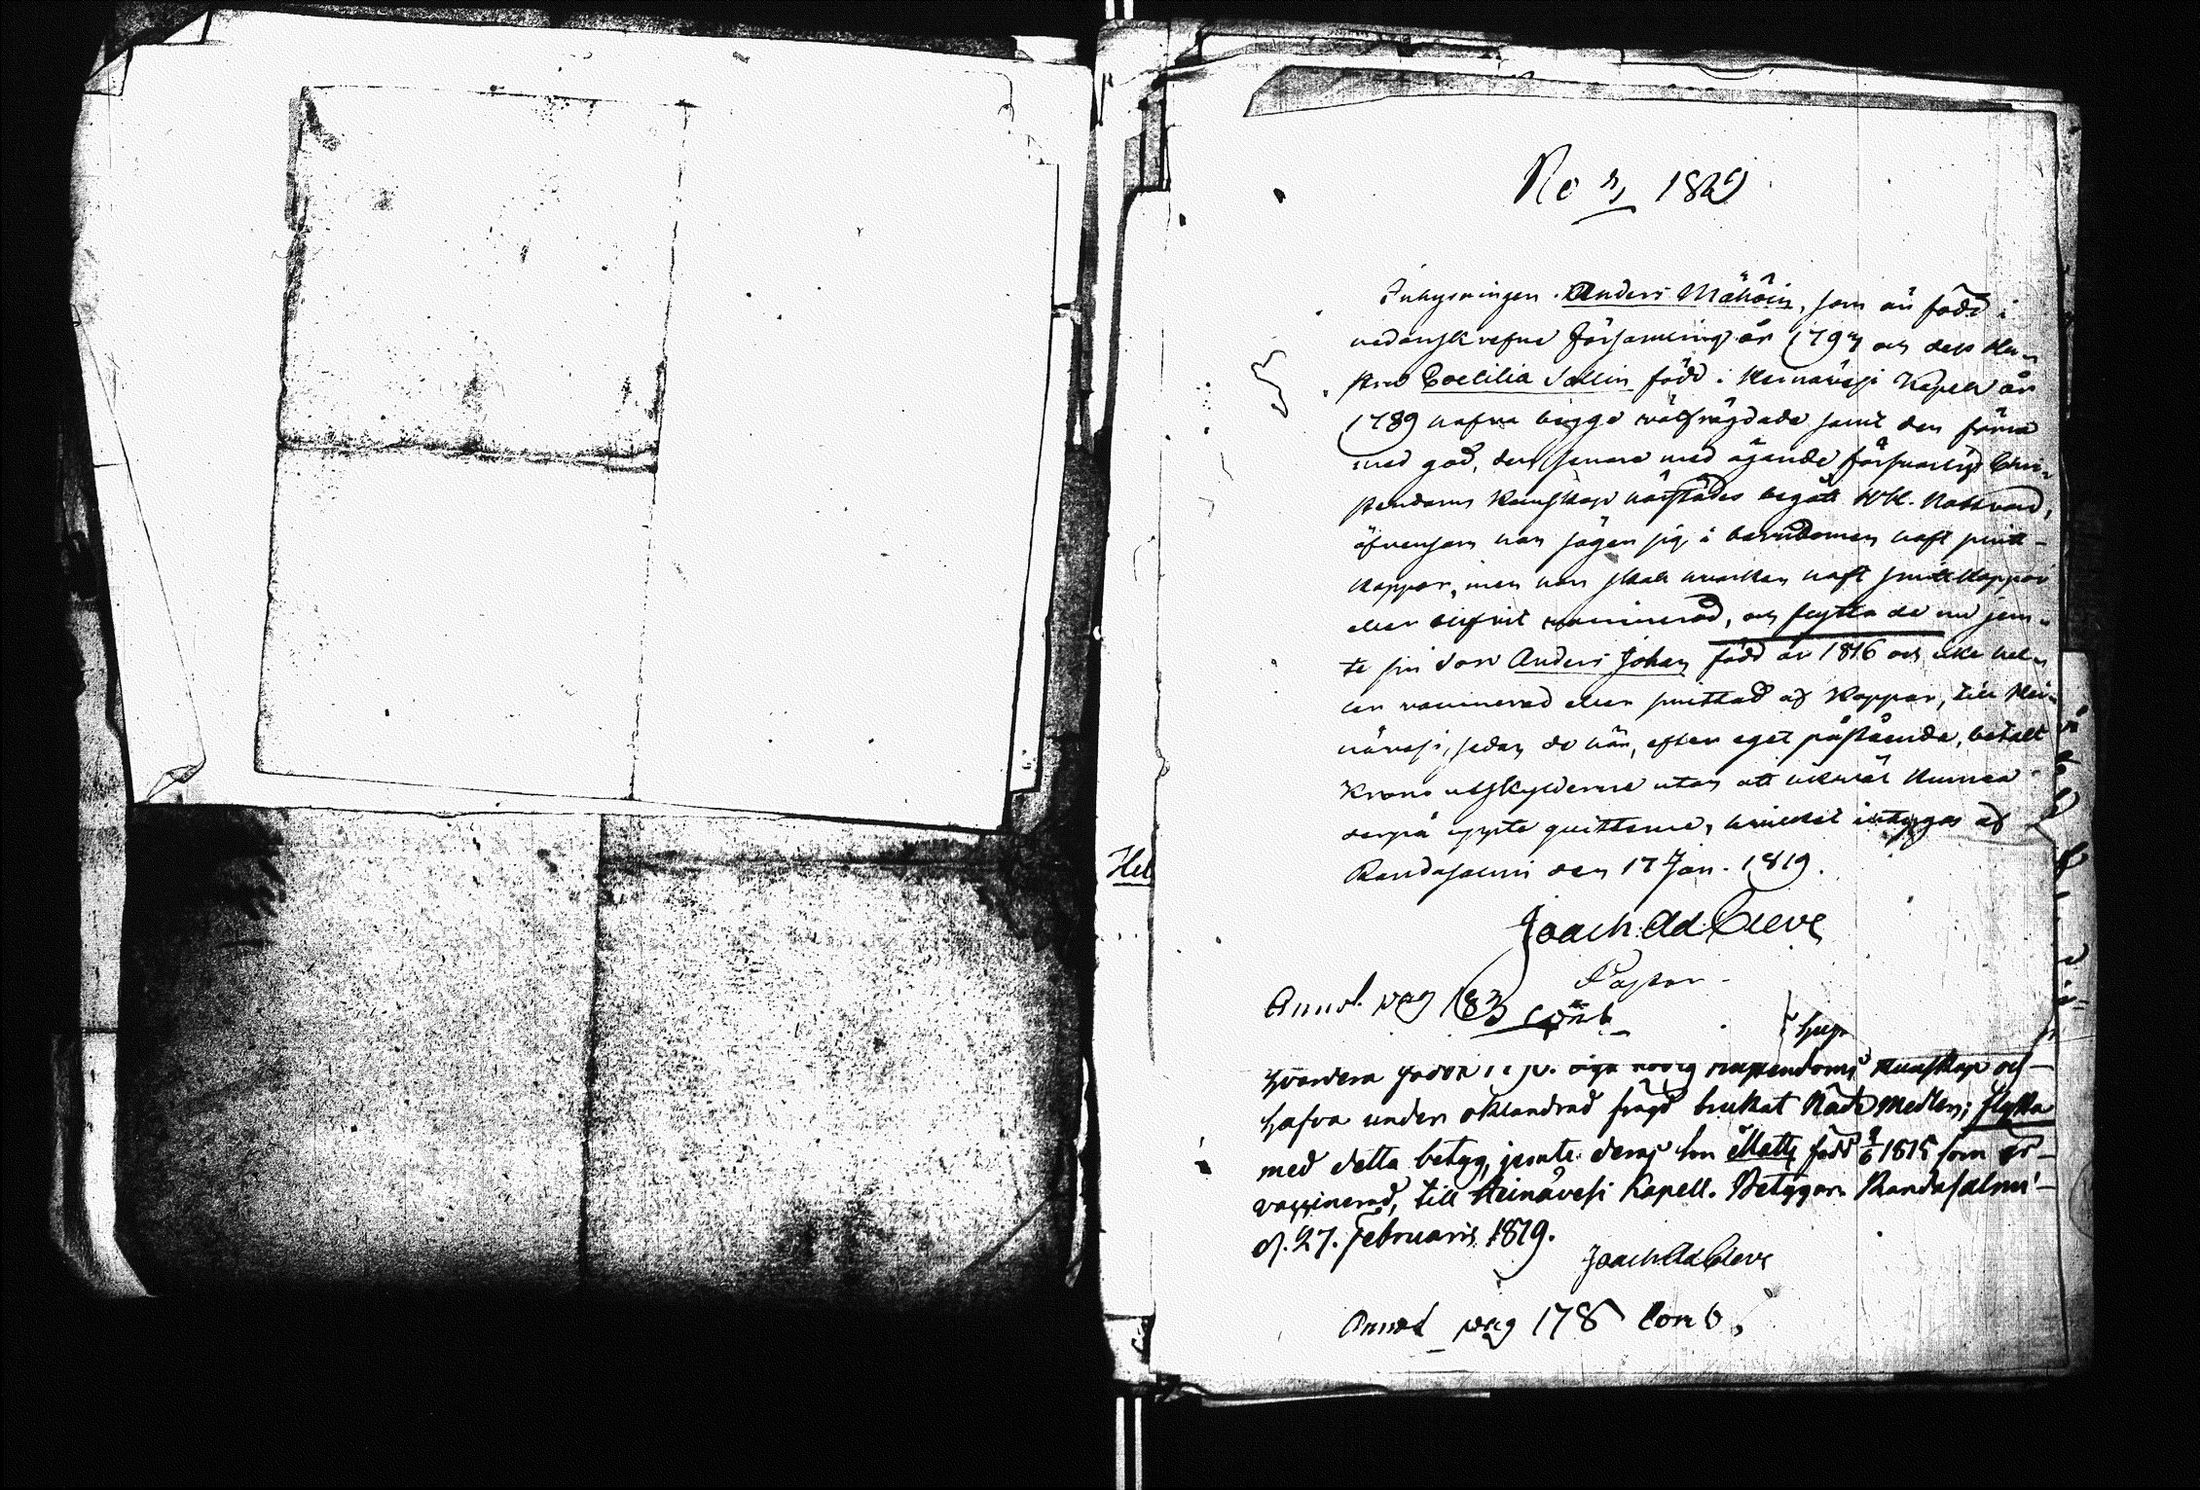 1819
Inhysningen Anders Mähöin, som är född i
nedanskrefne Församling år 179 och dess Hu-
stru Coelilia Sallin född i Heinävesi Kapell år
1789 hafva begge välfrägdade samt den förra
med god, den senare med ägande försvarlig Chri-
stendoms Kunskap härstädes begått HH. Nattvard,
äfvensom han säger sig i barndomen haft smitt-
koppor, men hon skall hvarken haft smittkoppor
eller blifvit vaccinerad, och flytta de nu jem-
te sin Son Anders Johan född år 1816 och icke hel-
ler vaccinerad eller smittad af Koppor, till Hei-
nävesi, sedan de här, efter eget påstående, betalt
Krono utskylderne utan att likväl kunna
derpå uppte quittence, hvilket intygas af
Randasalmi den 17 Jan. 1819.
Joach. Ad. Cleve
Pastor
Annot. pag 183
Hel
Kunskap och
hafva under oklandrad frägd brukat Nådemedlen; flytta
med detta betyg, jemte deras son Matts född 1815 som är
vaccinerad, till Heinävesi Kapell. Betygar. Randasalmi
d. 27. Februarii 1819.
Joach. Ad Cleve
Annot pag 178